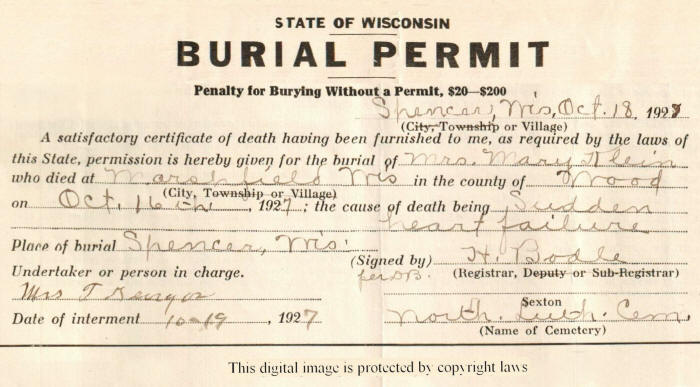 STATE OF WISCONSIN
BURIAL PERMIT
Penalty for Burying Without a Permit, $20—$200
Spencer, Wis, Oct. 18, 1927
(City, Township or Village)
A satisfactory certificate of death having been furnished to me, as required by the laws of
this State, permission is hereby given for the burial of Mrs. Mary Klein
who died at Marshfield Wis in the county of Wood
(City, Township or Village)
on Oct. 16 , 1927; the cause of death being Sudden
heart failure
Place of burial Spencer, Wis.
(Signed by) H. Bodle
per DB. (Registrar, Deputy or Sub-Registrar)
Undertaker or person in charge.
Mrs T
Sexton
Date of interment 10-19 , 1927 North. Luth. Cem.
(Name of Cemetery)
This digital image is protected by copyright laws